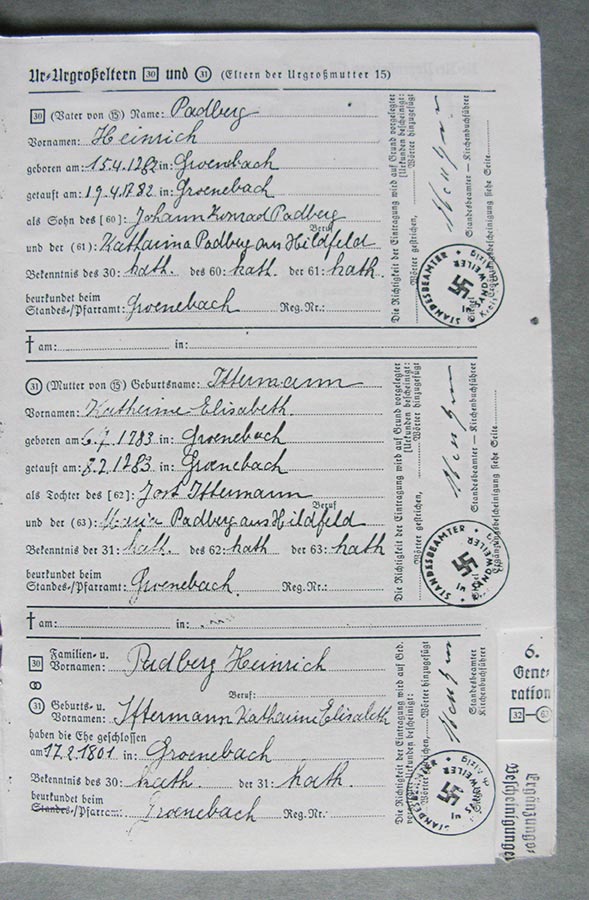 Ur-Urgroßeltern 30 und 31 (Eltern der Urgroßmutter 15)
30 (Vater von 15) Name: Padberg
Vornamen: Heinrich
geboren am: 15.4.1782 in: Groenebach
getauft am: 19.4.1782 in: Groenebach
als Sohn des [60]: Johann Konrad Padberg
Beruf
und der (61): Katharina Padberg aus Hildfeld
Bekenntnis des 30: kath. des 60: kath. der 61: kath.
beurkundet beim
Standes-/Pfarramt: Groenebach Reg.Nr.:
Die Richtigkeit der Eintragung wird auf Grund vorgelegter
Urkunden bescheinigt:
Wörter gestrichen, Wörter hinzugefügt
Standesbeamter — Kirchenbuchführer
Ergänzungsbescheinigung siehe Seite
STANDESBEAMTER IN SANDWEILER
† am: in:
31 (Mutter von 15) Geburtsname: Ittermann
Vornamen: Katharine Elisabeth
geboren am: 6.7.1783 in: Groenebach
getauft am: in: Groenebach
als Tochter des [62]: Jost Ittermann
Beruf
und der (63): Maria Padberg aus Hildfeld
Bekenntnis der 31: kath. des 62: kath der 63: kath
beurkundet beim
Standes-/Pfarramt: Groenebach Reg.Nr.:
Die Richtigkeit der Eintragung wird auf Grund vorgelegter
Urkunden bescheinigt:
Wörter gestrichen, Wörter hinzugefügt
Standesbeamter — Kirchenbuchführer
Ergänzungsbescheinigung siehe Seite
STANDESBEAMTER IN SANDWEILER
† am: in:
30 Familien- u.
Vornamen: Padberg Heinrich
Beruf:
31 Geburts- u.
Vornamen: Ittermann Katharine Elisabeth
haben die Ehe geschlossen
am 17.2.1801 in: Groenebach
Bekenntnis des 30: kath. der 31: kath.
beurkundet beim
Standes-/Pfarramt: Groenebach Reg.Nr.:
Die Richtigkeit der Eintragung wird auf Grd.
vorgelegter Urkunden bescheinigt:
Wörter gestrichen, Wörter hinzugefügt
Standesbeamter
Kirchenbuchführer
STANDESBEAMTER IN SANDWEILER
6.
Gene-
ration
32—63
Ergänzungs-
Bescheinigungen